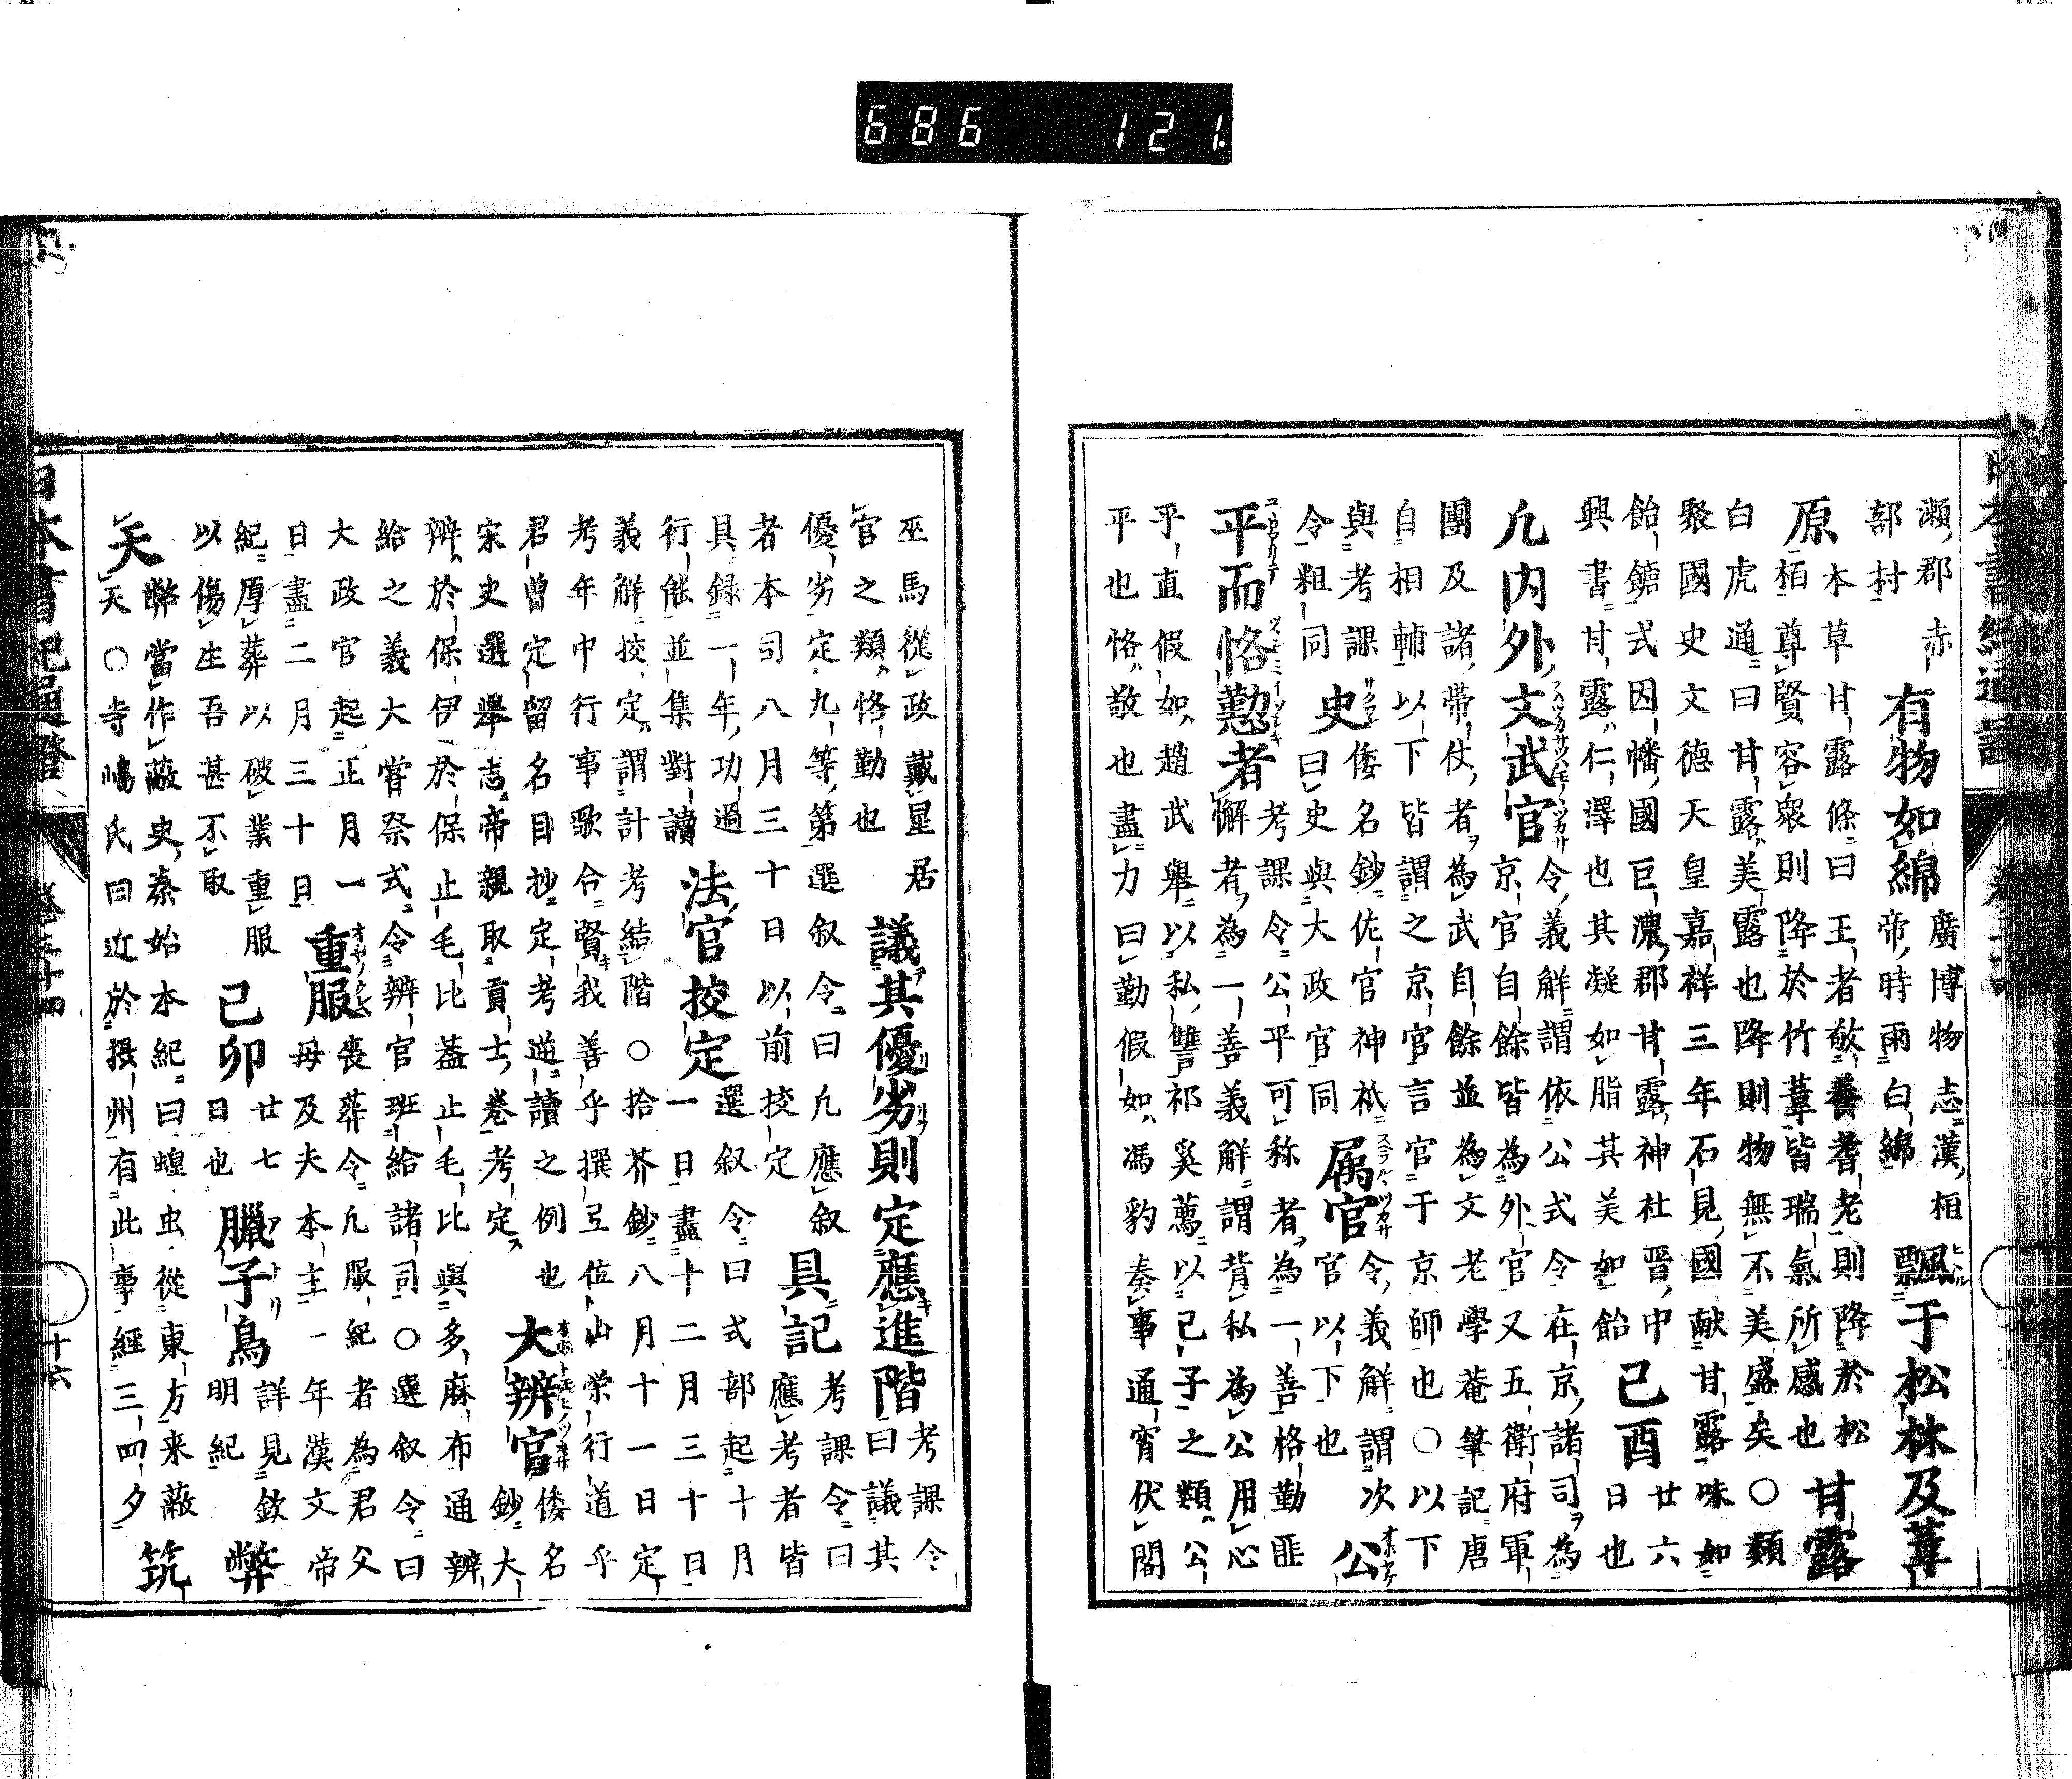 686 121
瀬郡赤
部村
有物如綿
廣博物志漢桓
帝時雨白綿
飄于松林及葦
原
本草甘露條曰王者敬養耆老則降於松
栢尊賢容衆則降於竹葦皆瑞氣所感也
甘露
白虎通曰甘露美露也降則物無不美盛矣○類
聚國史文德天皇嘉祥三年石見國献甘露味如
飴餹式因幡國巨濃郡甘露神社晋中
興書甘露仁澤也其凝如脂其美如飴
己酉
廿六
日也
凢内外文武官
令義解謂依公式令在京諸司為
京官自餘皆為外官又五衛府軍
團及諸帯仗者為武自餘並為文老學菴筆記唐
自相輔以下皆謂之京官言官于京師也○以下
與考課
令粗同
史
倭名鈔佐官神祇
曰史與大政官同
属官
令義解謂次
官以下也
公
平而恪懃者
考課令公平可称者為一善恪勤匪
懈者為一善義解謂背私為公用心
乎直假如趙武舉以私讐祁奚薦以己子之類公
平也恪敬也盡力曰勤假如馮豹奏事通宵伏閤
日本書紀通證
卷三十四
十六
巫馬從政戴星居
官之類恪勤也
議其優劣則定應進階
考課令
曰議其
優劣定九等第選叙令曰凢應叙
者本司八月三十日以前挍定
具記
考課令曰
應考者皆
具録一年功過
行能並集對讀
法官挍定
選叙令曰式部起十月
一日盡十二月三十日
義解挍定謂計考結階○拾芥鈔八月十一日定
考年中行事歌合賢我善乎撰互位山栄行道乎
君曽定留名目抄定考逆讀之例也
大辨官
倭名
鈔大
宋史選舉志帝親取貢士卷考定
辨於保伊於保止毛比葢止毛比與多麻布通辨
給之義大甞祭式令辨官班給諸司○選叙令曰
大政官起正月一
日盡二月三十日
重服
喪葬令凢服紀者為君父
母及夫本主一年漢文帝
紀厚葬以破業重服
以傷生吾甚不取
己卯
廿七
日也
臘子鳥
詳見欽
明紀
弊
天
弊當作蔽史秦始本紀曰蝗虫從東方来蔽
天○寺嶋氏曰近於摂州有此事經三四夕
筑
日本書紀通證
卷三十四
十六